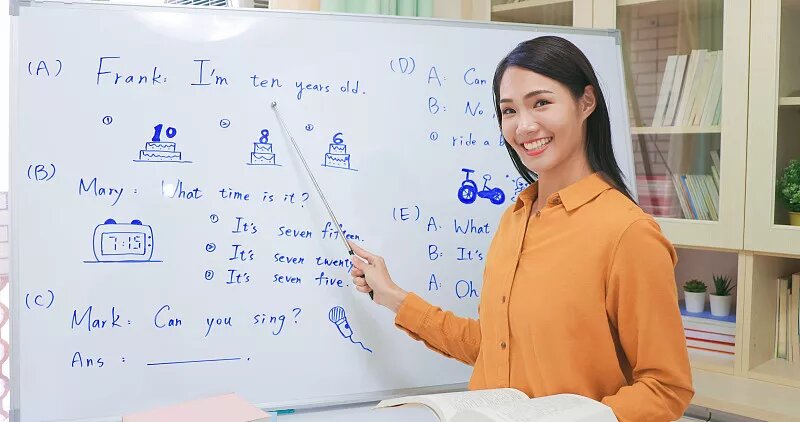 (A) Frank: I'm ten years old.
① ② ③
10 8 6
(B) Mary: What time is it?
7:15
① It's seven fifteen.
② It's seven twenty
③ It's seven five.
(C) Mark: Can you sing?
Ans: .
(D) A: Can
B: No,
① ride a
(E) A: What
B: It's
A: Oh